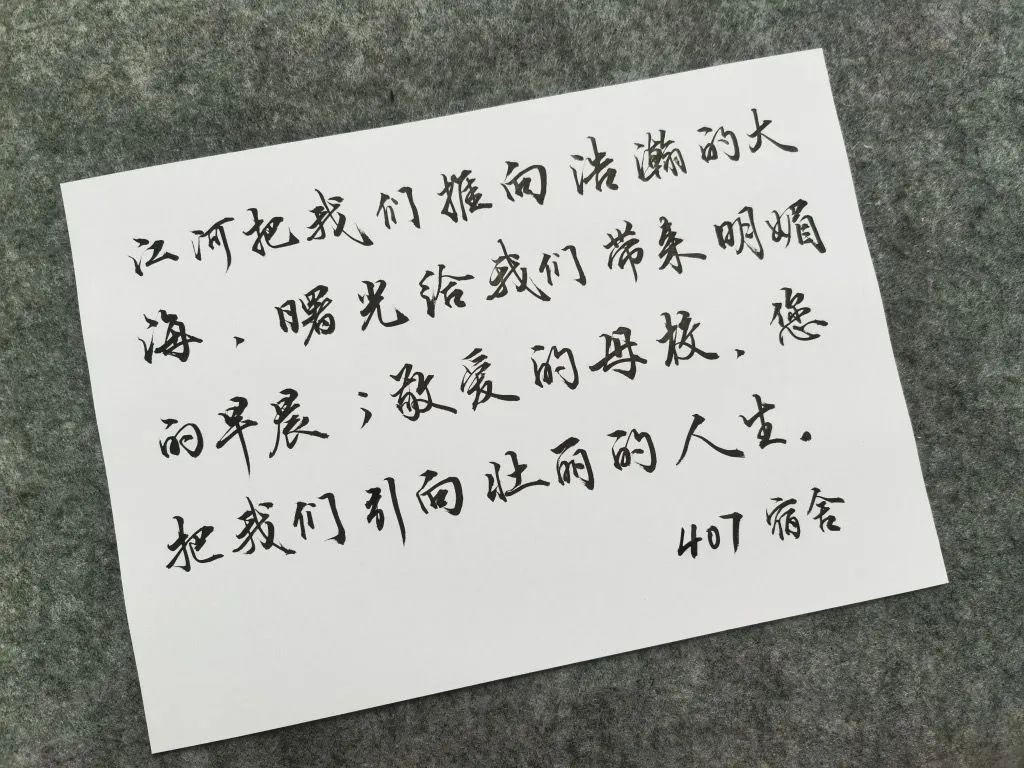 江河把我们推向浩瀚的大
海，曙光给我们带来明媚
的早晨；敬爱的母校，您
把我们引向壮丽的人生。
407 宿舍